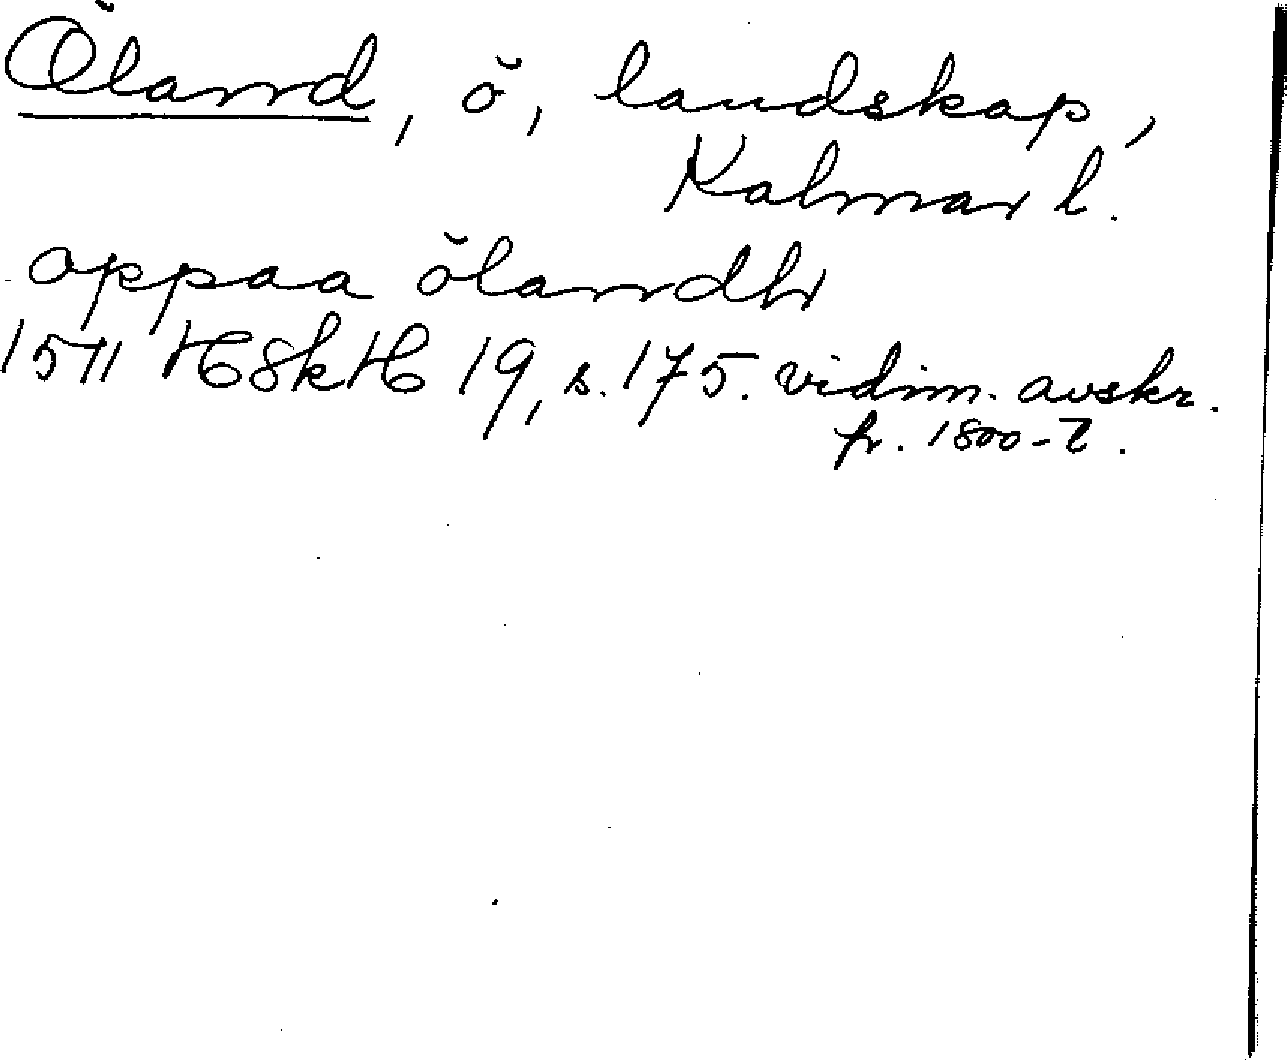 Öland, ö, landskap,
Kalmar l.
oppaa ölandh
1571 HSkH 19, s. 175. vidim. avskr.
fr. 1800-t.